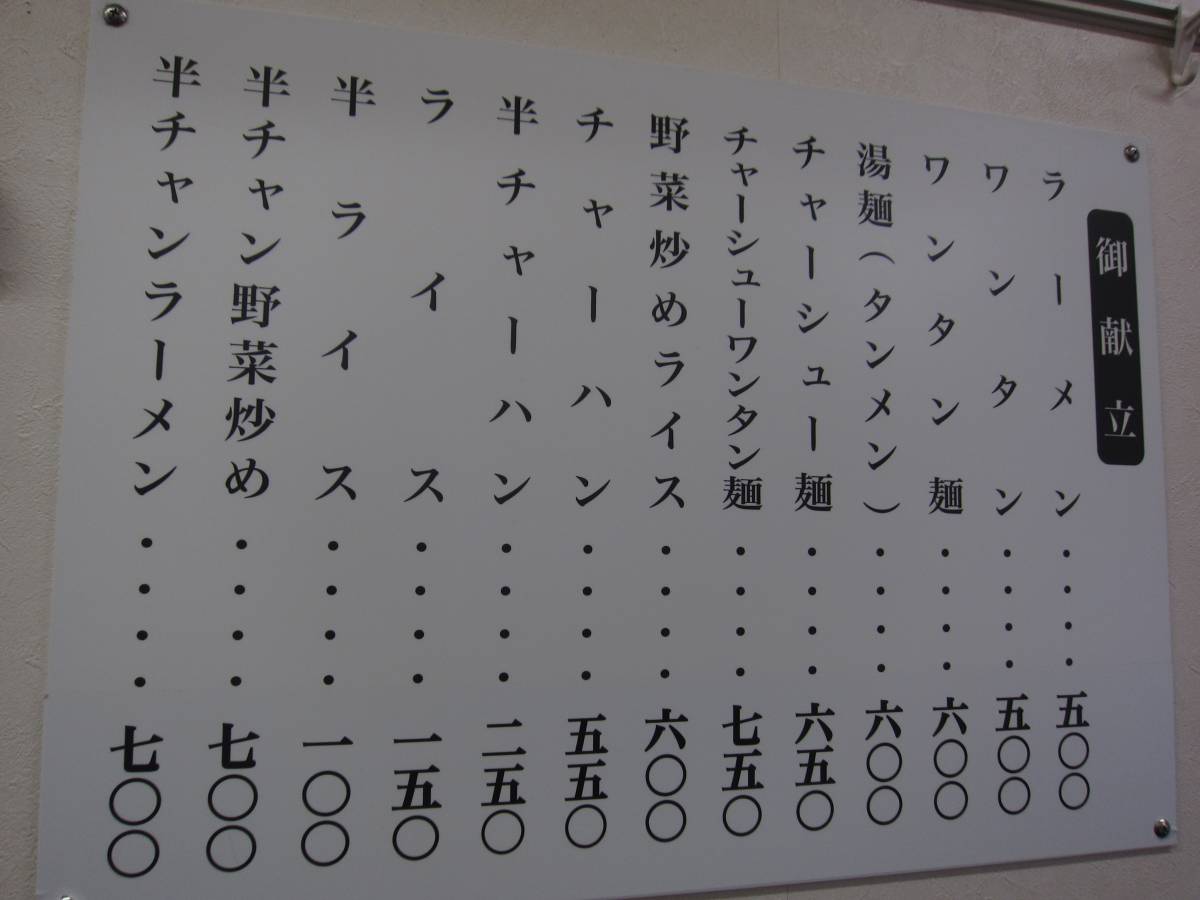 御献立
ラーメン・・・・五〇〇
ワンタン・・・・五〇〇
ワンタン麺・・・・六〇〇
湯麺(タンメン)・・・・六〇〇
チャーシュー麺・・・・六五〇
チャーシューワンタン麺・・・・七五〇
野菜炒めライス・・・・六〇〇
チャーハン・・・・五五〇
半チャーハン・・・・二五〇
ライス・・・・一五〇
半ライス・・・・一〇〇
半チャン野菜炒め・・・・七〇〇
半チャンラーメン・・・・七〇〇